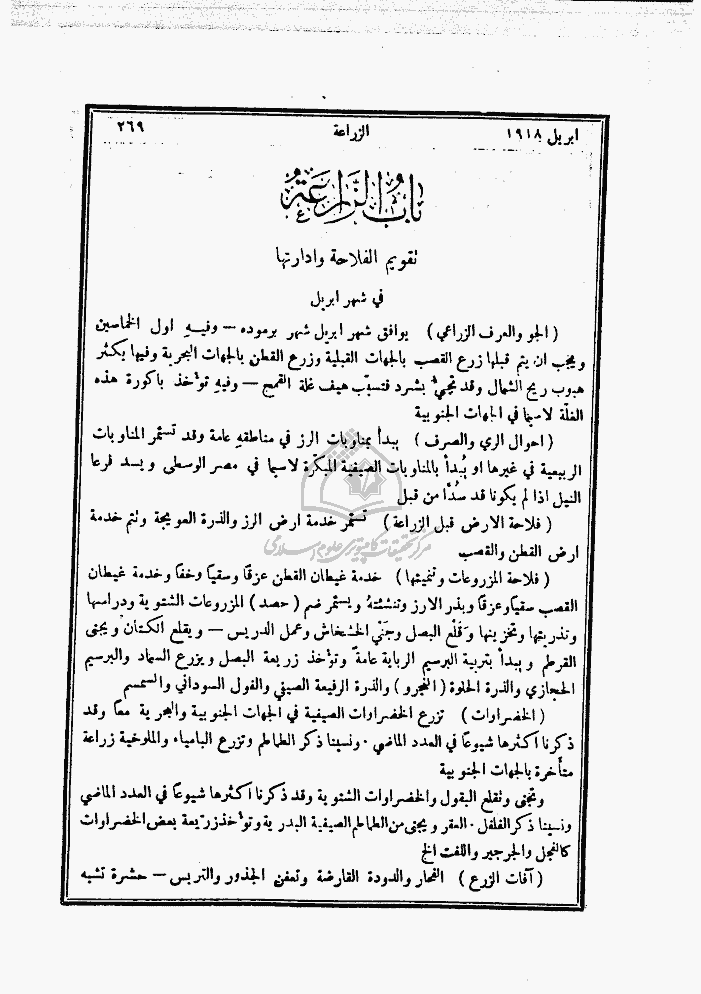 ابريل ١٩١٨ الزراعة ٢٦٩
باب الزراعة
تقويم الفلاحة وادارتها
في شهر ابريل
( الجو والعرف الزراعي ) يوافق شهر ابريل شهر برموده — وفيهِ اول الخماسين
ويجب ان يتم قبلها زرع القصب بالجهات القبلية وزرع القطن بالجهات البحرية وفيها يكثر
هبوب ريح الشمال وقد تجيءُ بشرد فتسبّب هيف غلة القمح — وفيهِ تؤخذ باكورة هذه
الغلّة لاسيما في الجهات الجنوبية
( احوال الري والصرف ) يبدأ بمناوبات الرز في مناطقهِ عامة وقد تستمر المناوبات
الربيعية في غيرها او يُبدأ بالمناوبات الصيفية المبكرة لاسيما في مصر الوسطى ويسد فرعا
النيل اذا لم يكونا قد سُدَّا من قبل
( فلاحة الارض قبل الزراعة ) تستمر خدمة ارض الرز والذرة العويجة وتتم خدمة
ارض القطن والقصب
مركز تحقيقات كامپيوتری علوم اسلامی
( فلاحة المزروعات وتنميتها ) خدمة غيطان القطن عزقًا وسقيًا وخفًا وخدمة غيطان
القصب سقيًا وعزقًا وبذر الارز وتنشئتهُ ويستمر ضم ( حصد ) المزروعات الشتوية ودراسها
وتذريتها وتخزينها وقلع البصل وجَنْي الخشخاش وعمل الدريس — ويقلع الكتان ويجنى
القرطم ويبدأ بتربية البرسيم الرباية عامةً وتؤخذ زريعة البصل ويزرع السماد والبرسيم
الحجازي والذرة الحلوة ( النجرو ) والذرة الرفيعة الصيفي والفول السوداني والسمسم
( الخضراوات ) تزرع الخضراوات الصيفية في الجهات الجنوبية والبحرية معًا وقد
ذكرنا اكثرها شيوعًا في العدد الماضي . ونسينا ذكر الطماطم وتزرع البامياء والملوخية زراعة
متأخرة بالجهات الجنوبية
وتجنى وتقلع البقول والخضراوات الشتوية وقد ذكرنا اكثرها شيوعًا في العدد الماضي
ونسينا ذكر الفلفل . العقر ويجنى من الطماطم الصيفية البدرية وتؤخذ زريعة بعض الخضراوات
كالفجل والجرجير واللفت الخ
( آفات الزرع ) الفحار والدودة القارضة وتعفن الجذور والتربس — حشرة تشبه